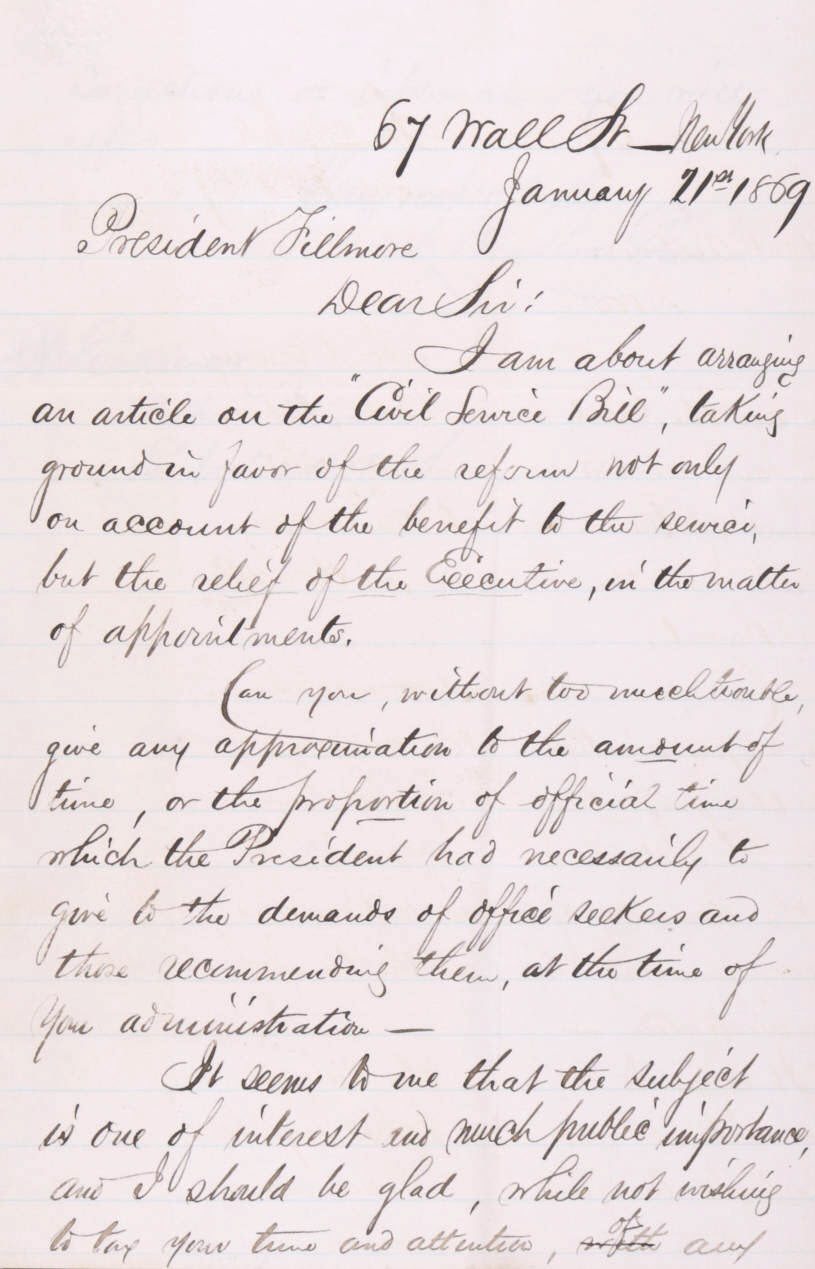 67 Wall St — New York
January 21st 1869
President Fillmore
Dear Sir:
I am about arranging
an article on the "Civil Service Bill", taking
ground in favor of the reform not only
on account of the benefit to the service,
but the relief of the Executive, in the matter
of appointments.
Can you, without too much trouble,
give any approximation to the amount of
time, or the proportion of official time
which the President had necessarily to
give to the demands of office seekers and
those recommending them, at the time of
your administration —
It seems to me that the subject
is one of interest and much public importance,
and I should be glad, while not wishing
of
to tax your time and attention, any